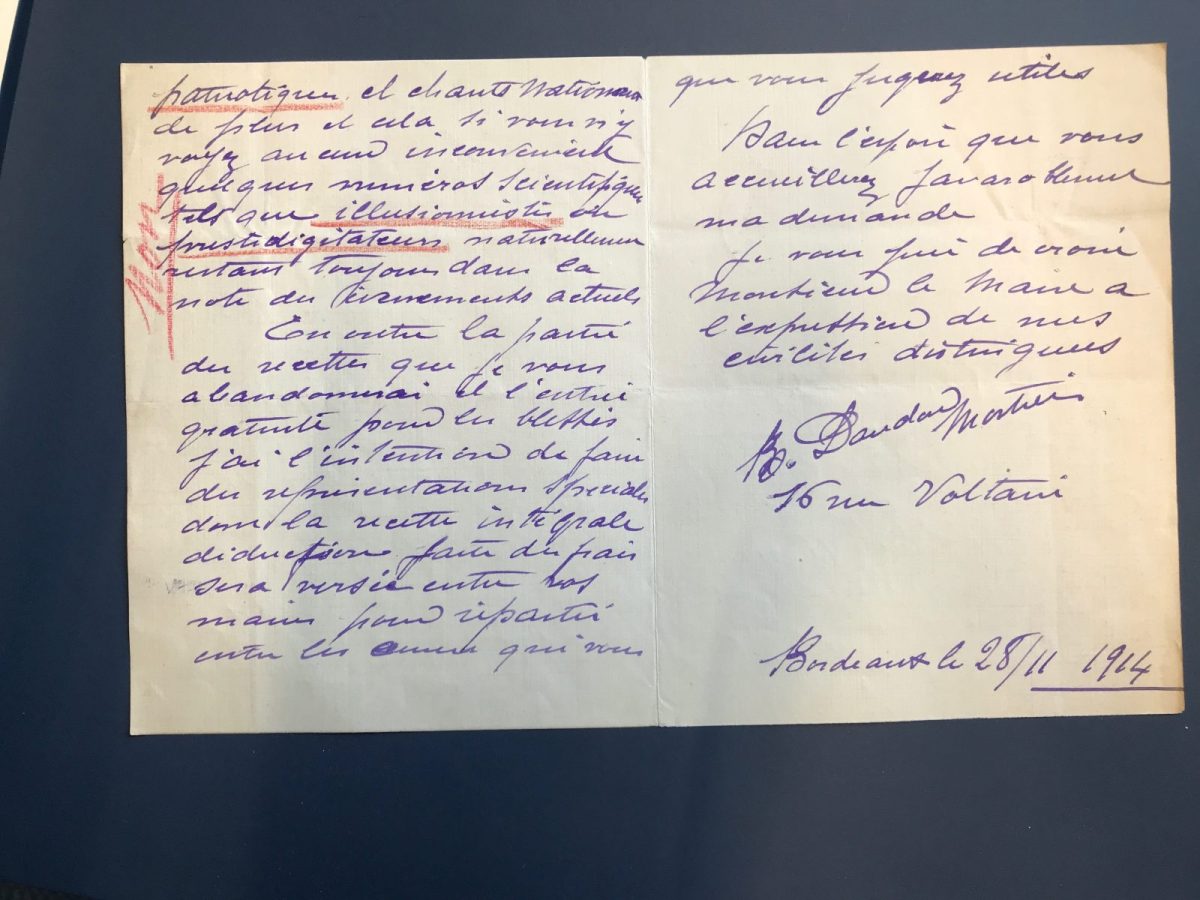 patriotiques et chants Nationaux
de plus et cela si vous n'y
voyez aucun inconvenient
quelques numéros scientifiques
tels que illusionnistes ou
prestidigitateurs naturellement
restant toujours dans la
note des évenements actuels
Non
En outre la partie
des recettes que je vous
abandonnerai et l'entrée
gratuite pour les blessés
j'ai l'intention de faire
des représentations spéciales
dont la recette intégrale
déduction faite des frais
sera versée entre vos
mains pour répartir
entre les qui vous
que vous jugerez utiles
Dans l'espoir que vous
accueillerez favorablement
ma demande
je vous prie de croire
Monsieur le Maire a
l'expression de mes
civilités distingués
B. Dandou Mortier
16 rue Voltaire
Bordeaux le 28/11 1914